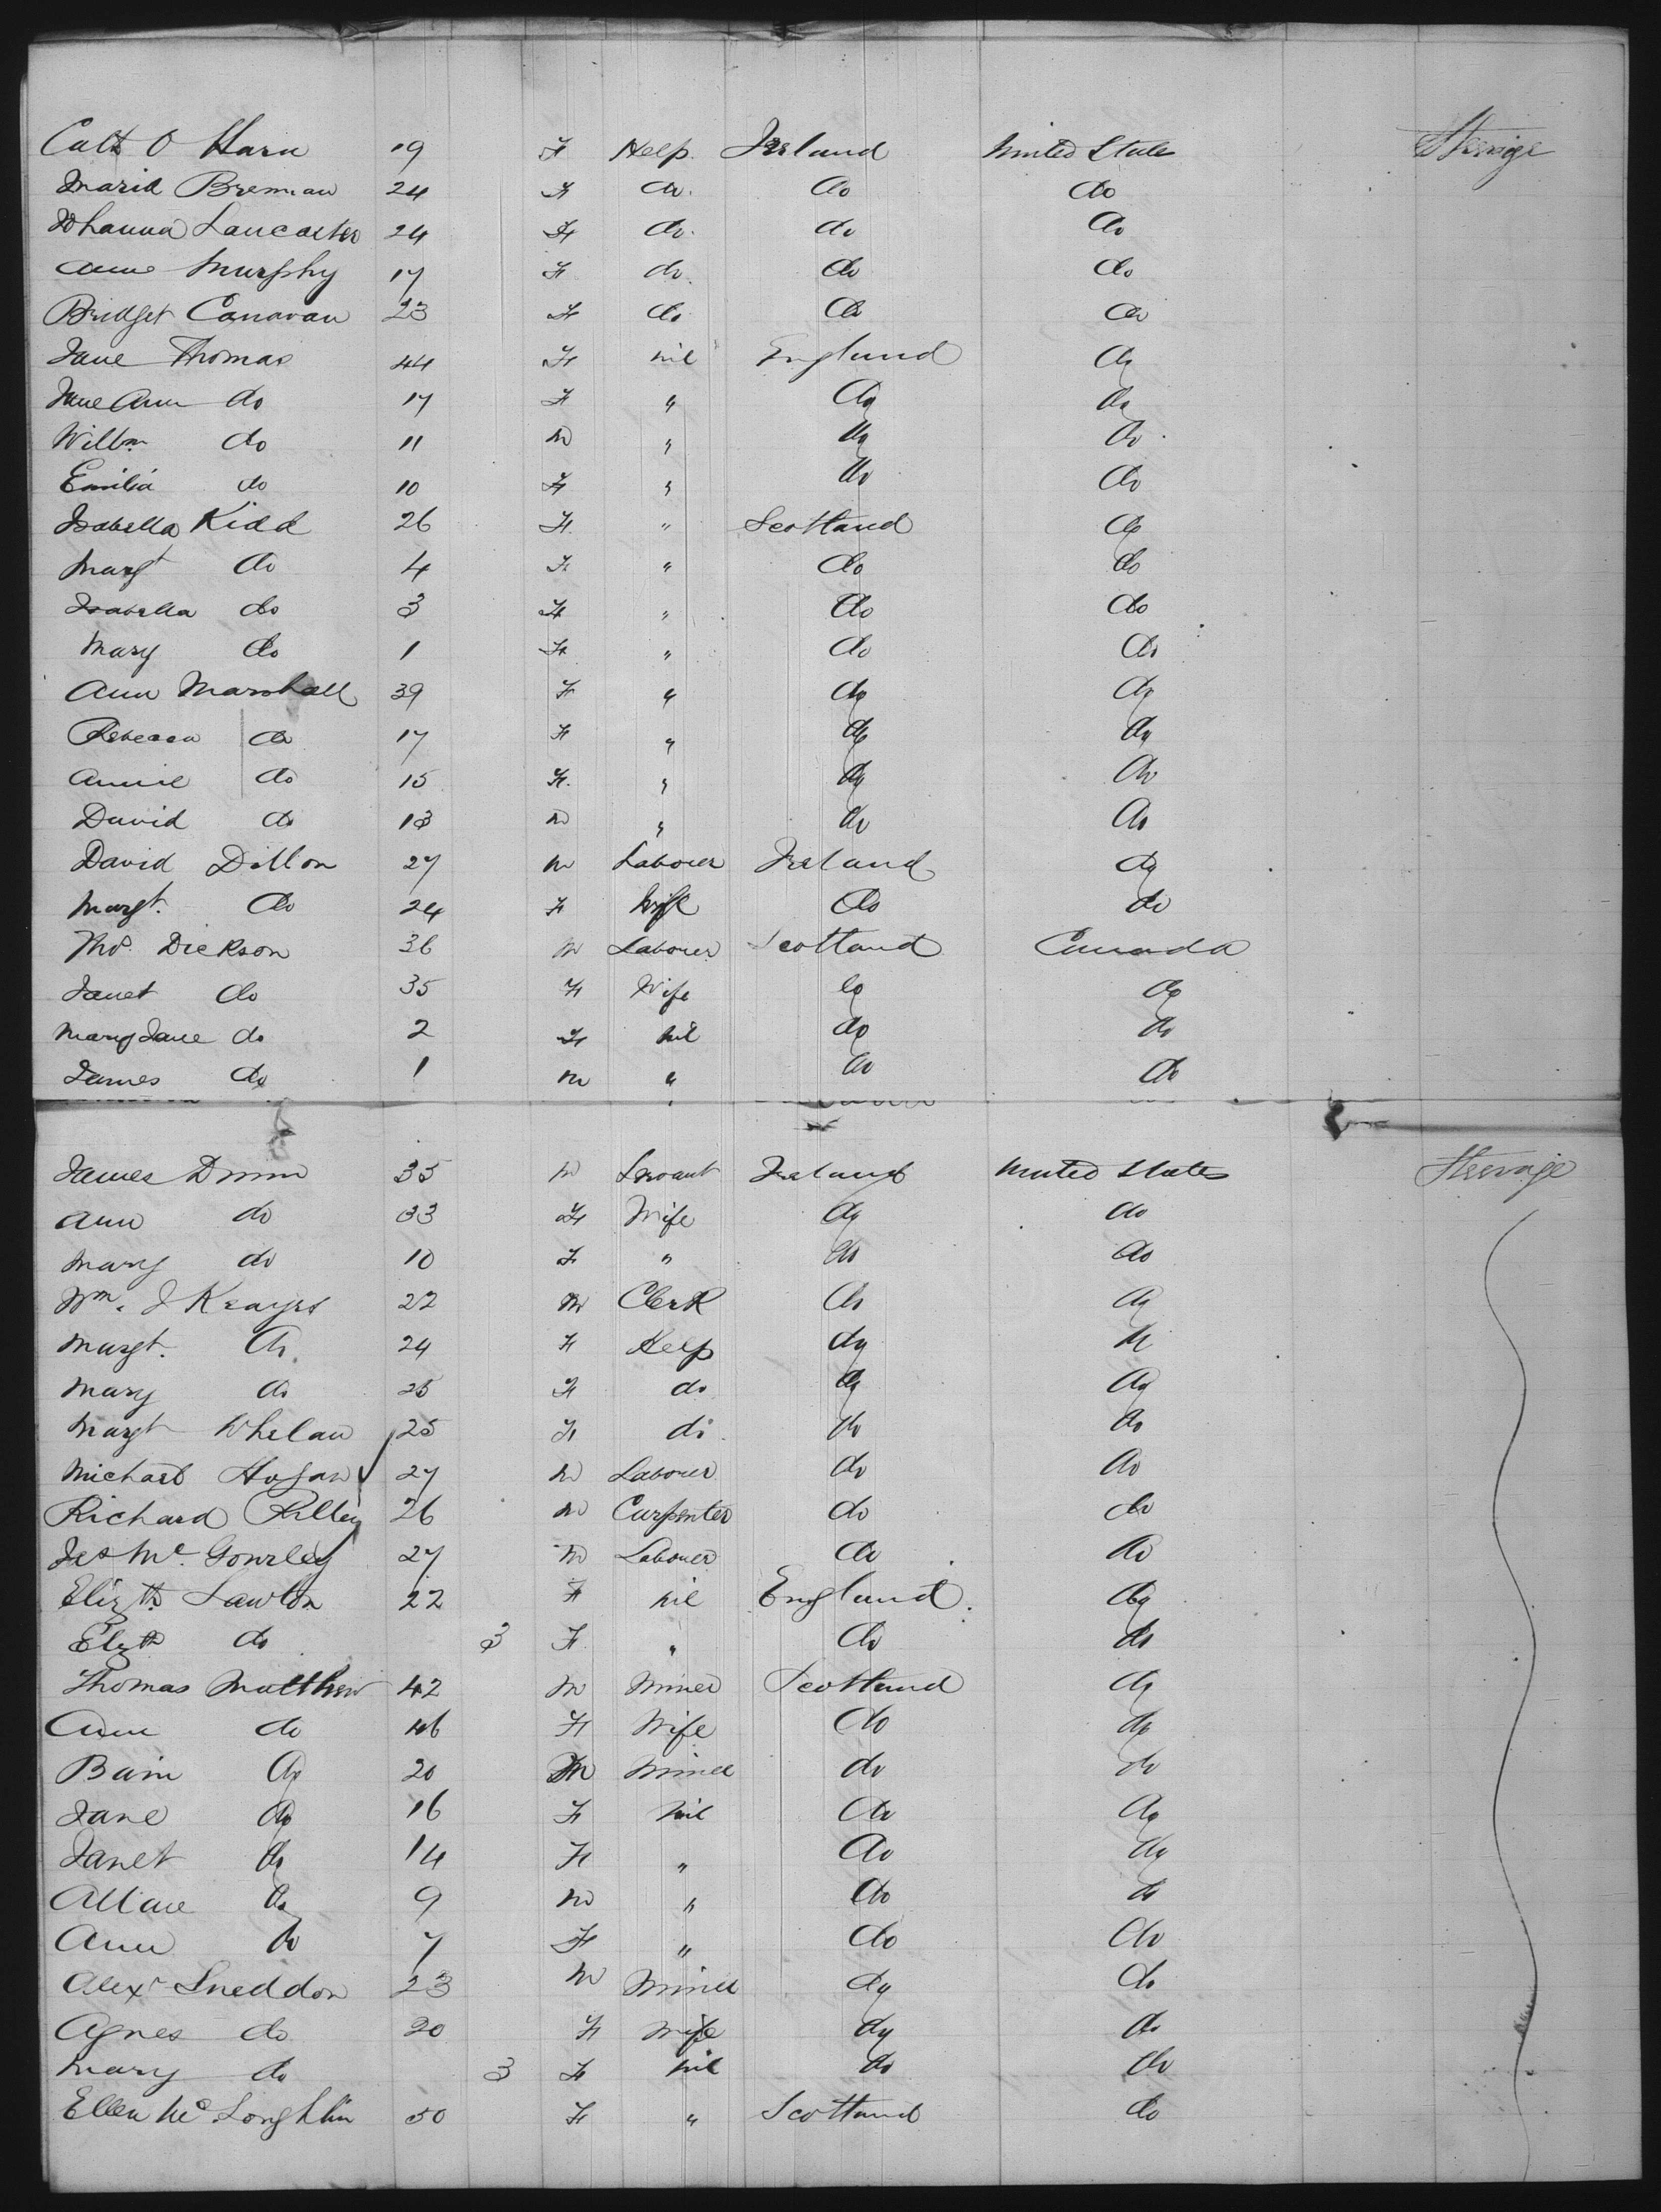 Cath O Hara 19 F Help Ireland United States Steerage
Maria Brennan 24 F do. do do
Johanna Lancaster 24 F do. do do
Anne Murphy 17 F do. do do
Bridget Canavan 23 F do do do
Jane Thomas 44 F nil England do
Jane Ann do 17 F " do do
Willm do 11 M " do do
Emilia do 10 F " do do
Isabella Kidd 26 F " Scotland do
Margt do 4 F " do do
Isabella do 3 F " do do
Mary do 1 F " do do
Ann Marshall 39 F " do do
Rebecca do 17 F " do do
Annie do 15 F. " do do
David do 13 M " do do
David Dillon 27 M Labourer Ireland do
Margt. do 24 F Wife do do
Thos. Dickson 36 M Labourer Scotland Canada
Janet do 35 F Wife do do
Mary Jane do 2 F nil do do
James do 1 M " do do
James 35 M Servant Ireland United States Steerage
Ann do 33 F Wife do do
Mary do 10 F " do do
Wm. J Keayes 22 M Clerk do do
Margt. do. 24 F Help do do
Mary do 25 F do do do
Margt Whelan 25 F do. do do
Michael Hogan 27 M Labourer do do
Richard 26 M Carpenter do do
Jas Mc. Gourley 27 M Labourer do do
Elizth. Lawton 22 F nil England. do
Elizth do 3 F " do do
Thomas Matthew 42 M Miner Scotland do
Ann do 46 F Wife do do
Bain do 20 M Miner do do
Jane do 16 F nil do do
Janet do 14 F " do do
do 9 M " do do
Ann do 7 F " do do
Alexr Sneddon 23 M Miner do do
Agnes do 20 F Wife do do
Mary do 3 F nil do do
Ellen Mc Loughlin 50 F " Scotland do